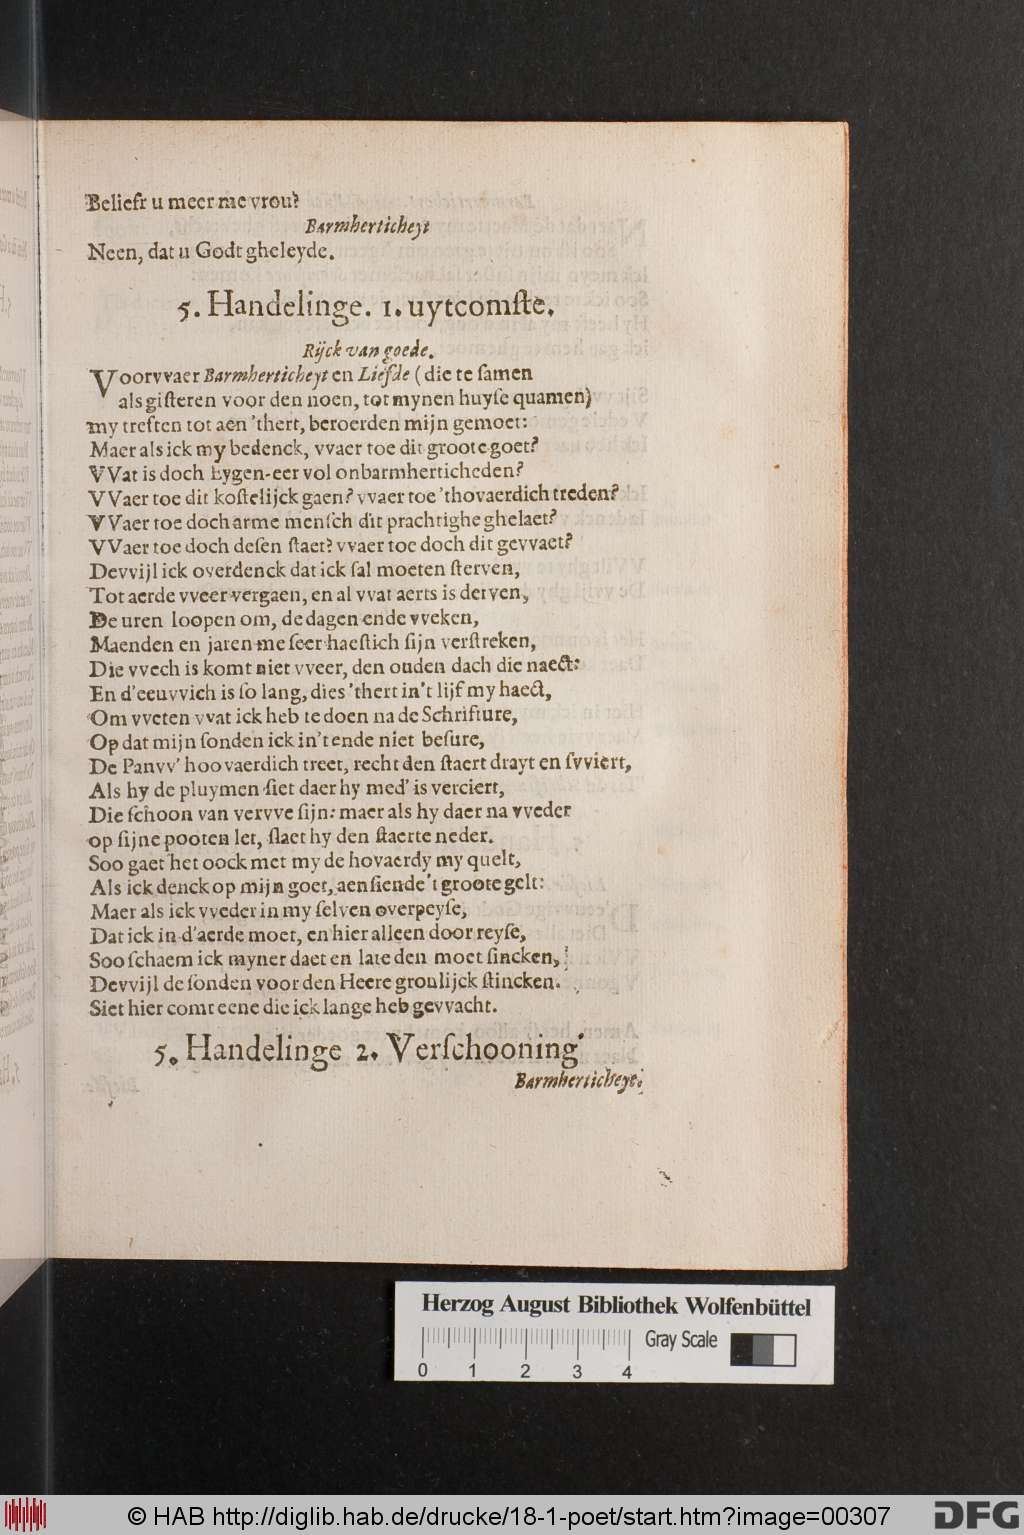 Belieft u meer me vrou?
Barmherticheyt
Neen, dat u Godt gheleyde.
5. Handelinge. 1. uytcomſte.
Rijck van goede.
Voorvvaer Barmherticheyt en Lieſde (die te ſamen
als giſteren voor den noen, tot mynen huyſe quamen)
my treften tot aen 'thert, beroerden mijn gemoet:
Maer als ick my bedenck, vvaer toe dit groote goet?
VVat is doch Eygen-eer vol onbarmherticheden?
VVaer toe dit koſtelijck gaen? vvaer toe 'thovaerdich treden?
VVaer toe doch arme menſch dit prachtighe ghelaet?
VVaer toe doch deſen ſtaet? vvaer toe doch dit gevvaet?
Devvijl ick overdenck dat ick ſal moeten ſterven,
Tot aerde vveer vergaen, en al vvat aerts is derven,
De uren loopen om, de dagen ende vveken,
Maenden en jaren me ſeer haeſtich ſijn verſtreken,
Die vvech is komt niet vveer, den ouden dach die naect:
En d'eeuvvich is ſo lang, dies 'thert in't lijf my haect,
Om vveten vvat ick heb te doen na de Schrifture,
Op dat mijn ſonden ick in't ende niet beſure,
De Panvv' hoovaerdich treet, recht den ſtaert drayt en ſvviert,
Als hy de pluymen ſiet daer hy med' is verciert,
Die ſchoon van vervve ſijn: maer als hy daer na vveder
op ſijne pooten let, ſlaet hy den ſtaerte neder.
Soo gaet het oock met my de hovaerdy my quelt,
Als ick denck op mijn goet, aenſiende 't groote gelt:
Maer als ick vveder in my ſelven overpeyſe,
Dat ick in d'aerde moet, en hier alleen door reyſe,
Soo ſchaem ick myner daet en late den moet ſincken,
Devvijl de ſonden voor den Heere gronlijck ſtincken.
Siet hier comt eene die ick lange heb gevvacht.
5. Handelinge 2. Verſchooning
Barmherticheyt.
Herzog August Bibliothek Wolfenbüttel
Gray Scale
0 1 2 3 4
© HAB http://diglib.hab.de/drucke/18-1-poet/start.htm?image=00307
DFG